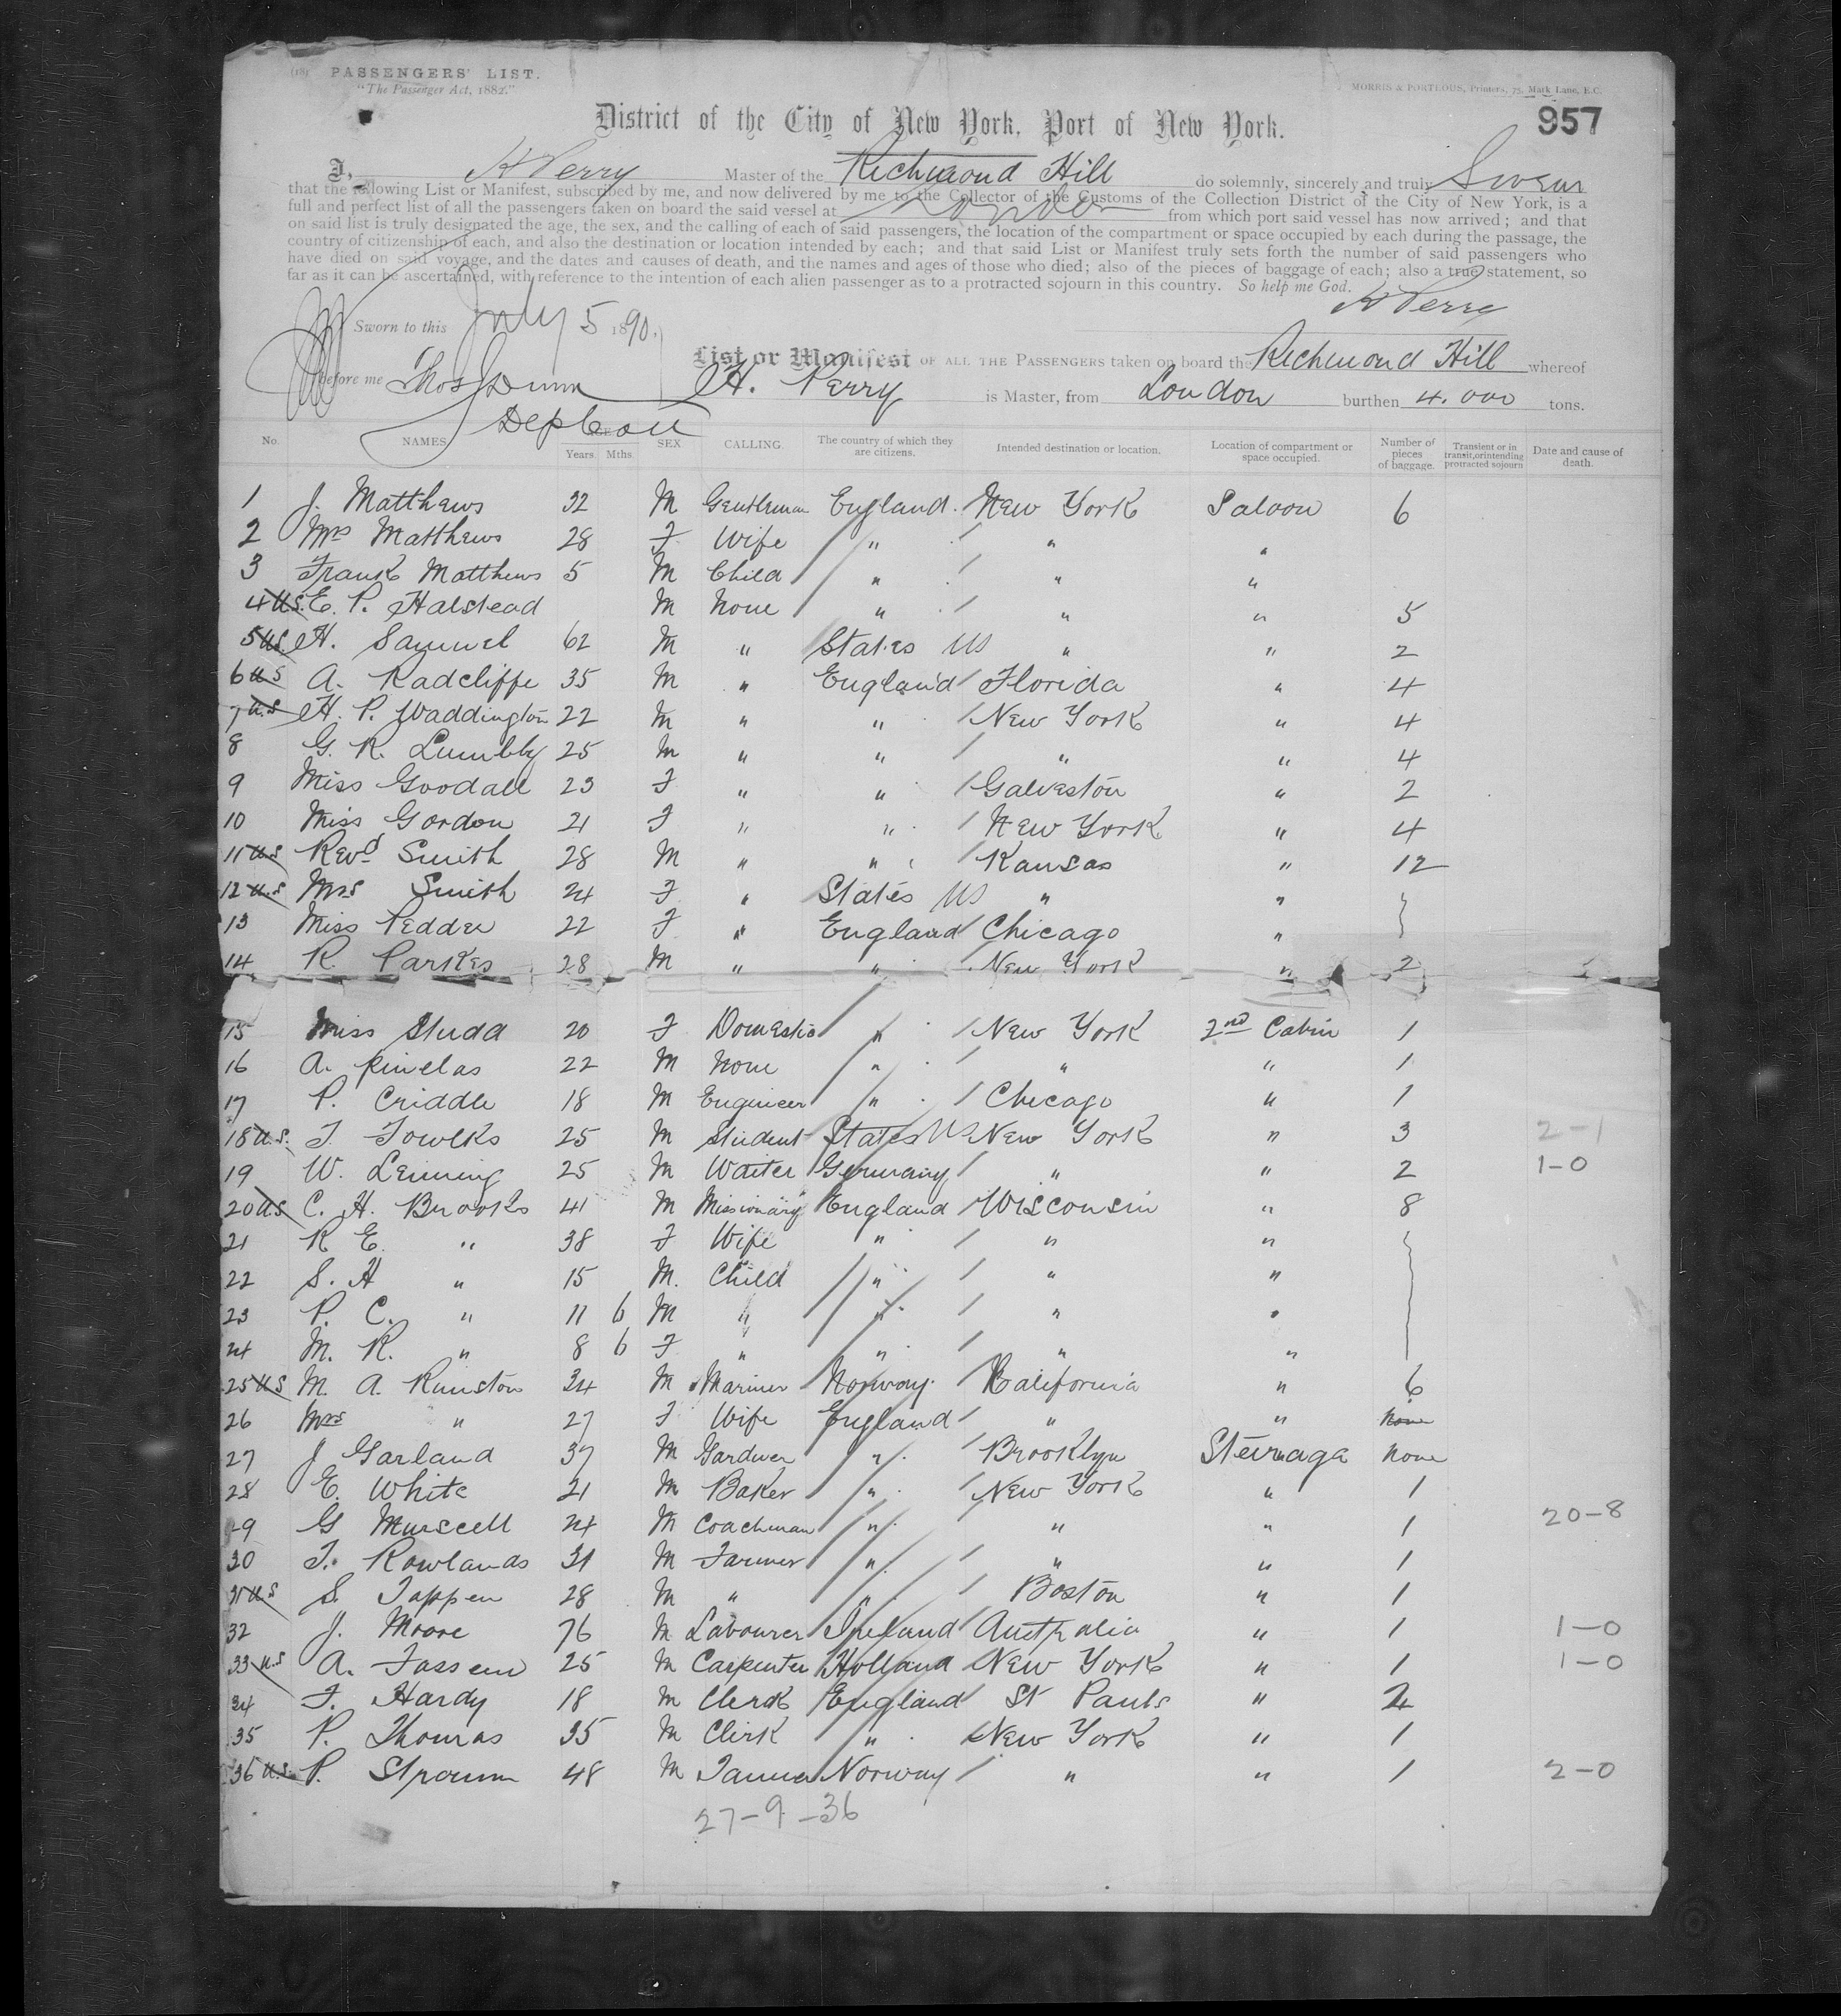 (18) PASSENGERS' LIST.
"The Passenger Act, 1882."
MORRIS & PORTEOUS, Printers, 75, Mark Lane, E.C.
District of the City of New York, Port of New York.
957
I, H Perry Master of the Richmond Hill do solemnly, sincerely and truly Swear
that the following List or Manifest, subscribed by me, and now delivered by me to the Collector of the Customs of the Collection District of the City of New York, is a
full and perfect list of all the passengers taken on board the said vessel at London from which port said vessel has now arrived; and that
on said list is truly designated the age, the sex, and the calling of each of said passengers, the location of the compartment or space occupied by each during the passage, the
country of citizenship of each, and also the destination or location intended by each; and that said List or Manifest truly sets forth the number of said passengers who
have died on said voyage, and the dates and causes of death, and the names and ages of those who died; also of the pieces of baggage of each; also a true statement, so
far as it can be ascertained, with reference to the intention of each alien passenger as to a protracted sojourn in this country. So help me God.
H Perry
Sworn to this July 5 1890.
List or Manifest OF ALL THE PASSENGERS taken on board the Richmond Hill whereof
before me Thos Dunn H. Perry is Master, from London burthen 4.000 tons.
Dep Coll
No. NAMES. AGE Years. Mths. SEX CALLING. The country of which they are citizens. Intended destination or location. Location of compartment or space occupied. Number of pieces of baggage. Transient or in transit, or intending protracted sojourn Date and cause of death.
1 J. Matthews 32 M Gentleman England. New York Saloon 6
2 Mrs Matthews 28 F Wife " " "
3 Frank Matthews 5 M Child " " "
4 U.S. E. P. Halstead M None " " " 5
5 U.S. H. Samuel 62 M " States US " " 2
6 U.S A. Radcliffe 35 M " England Florida " 4
7 U.S H. P. Waddington 22 M " " New York " 4
8 G. R. Lumbly 25 M " " " " 4
9 Miss Goodall 23 F " " Galveston " 2
10 Miss Gordon 21 F " " New York " 4
11 U.S Revd Smith 28 M " " Kansas " 12
12 U.S Mrs Smith 24 F " States US " "
13 Miss Pedder 22 F " England Chicago "
14 R. Parkes 28 M " " New York " 2
15 Miss Studd 20 F Domestic " New York 2nd Cabin 1
16 A. Pinelas 22 M None " " " 1
17 P. Criddle 18 M Engineer " Chicago " 1
18 U.S. T. Fowlks 25 M Student States US New York " 3 2-1
19 W. Lenning 25 M Waiter Germany " " 2 1-0
20 U.S. C. H. Brooks 41 M Missionary England Wisconsin " 8
21 R E. " 38 F Wife " " "
22 S. H " 15 M. Child " " "
23 P. C. " 11 6 M " " " "
24 M. R. " 8 6 F " " " "
25 U.S M. A. Runston 34 M Mariner Norway California " 6
26 Mrs " 27 F Wife England " " None
27 J Garland 37 M Gardner " Brooklyn Steerage None
28 E. White 21 M Baker " New York " 1
29 G Murscell 24 M Coachman " " " 1 20-8
30 T. Rowlands 31 M Farmer " " " 1
31 U.S S. Tappen 28 M " " Boston " 1
32 J. Moore 76 M Labourer Ireland Australia " 1 1-0
33 U.S A. Fassen 25 M Carpenter Holland New York " 1 1-0
34 F. Hardy 18 M Clerk England St Pauls " 2
35 P. Thomas 35 M Clerk " New York " 1
36 U.S. P. 48 M Tanner Norway " " 1 2-0
27-9-36